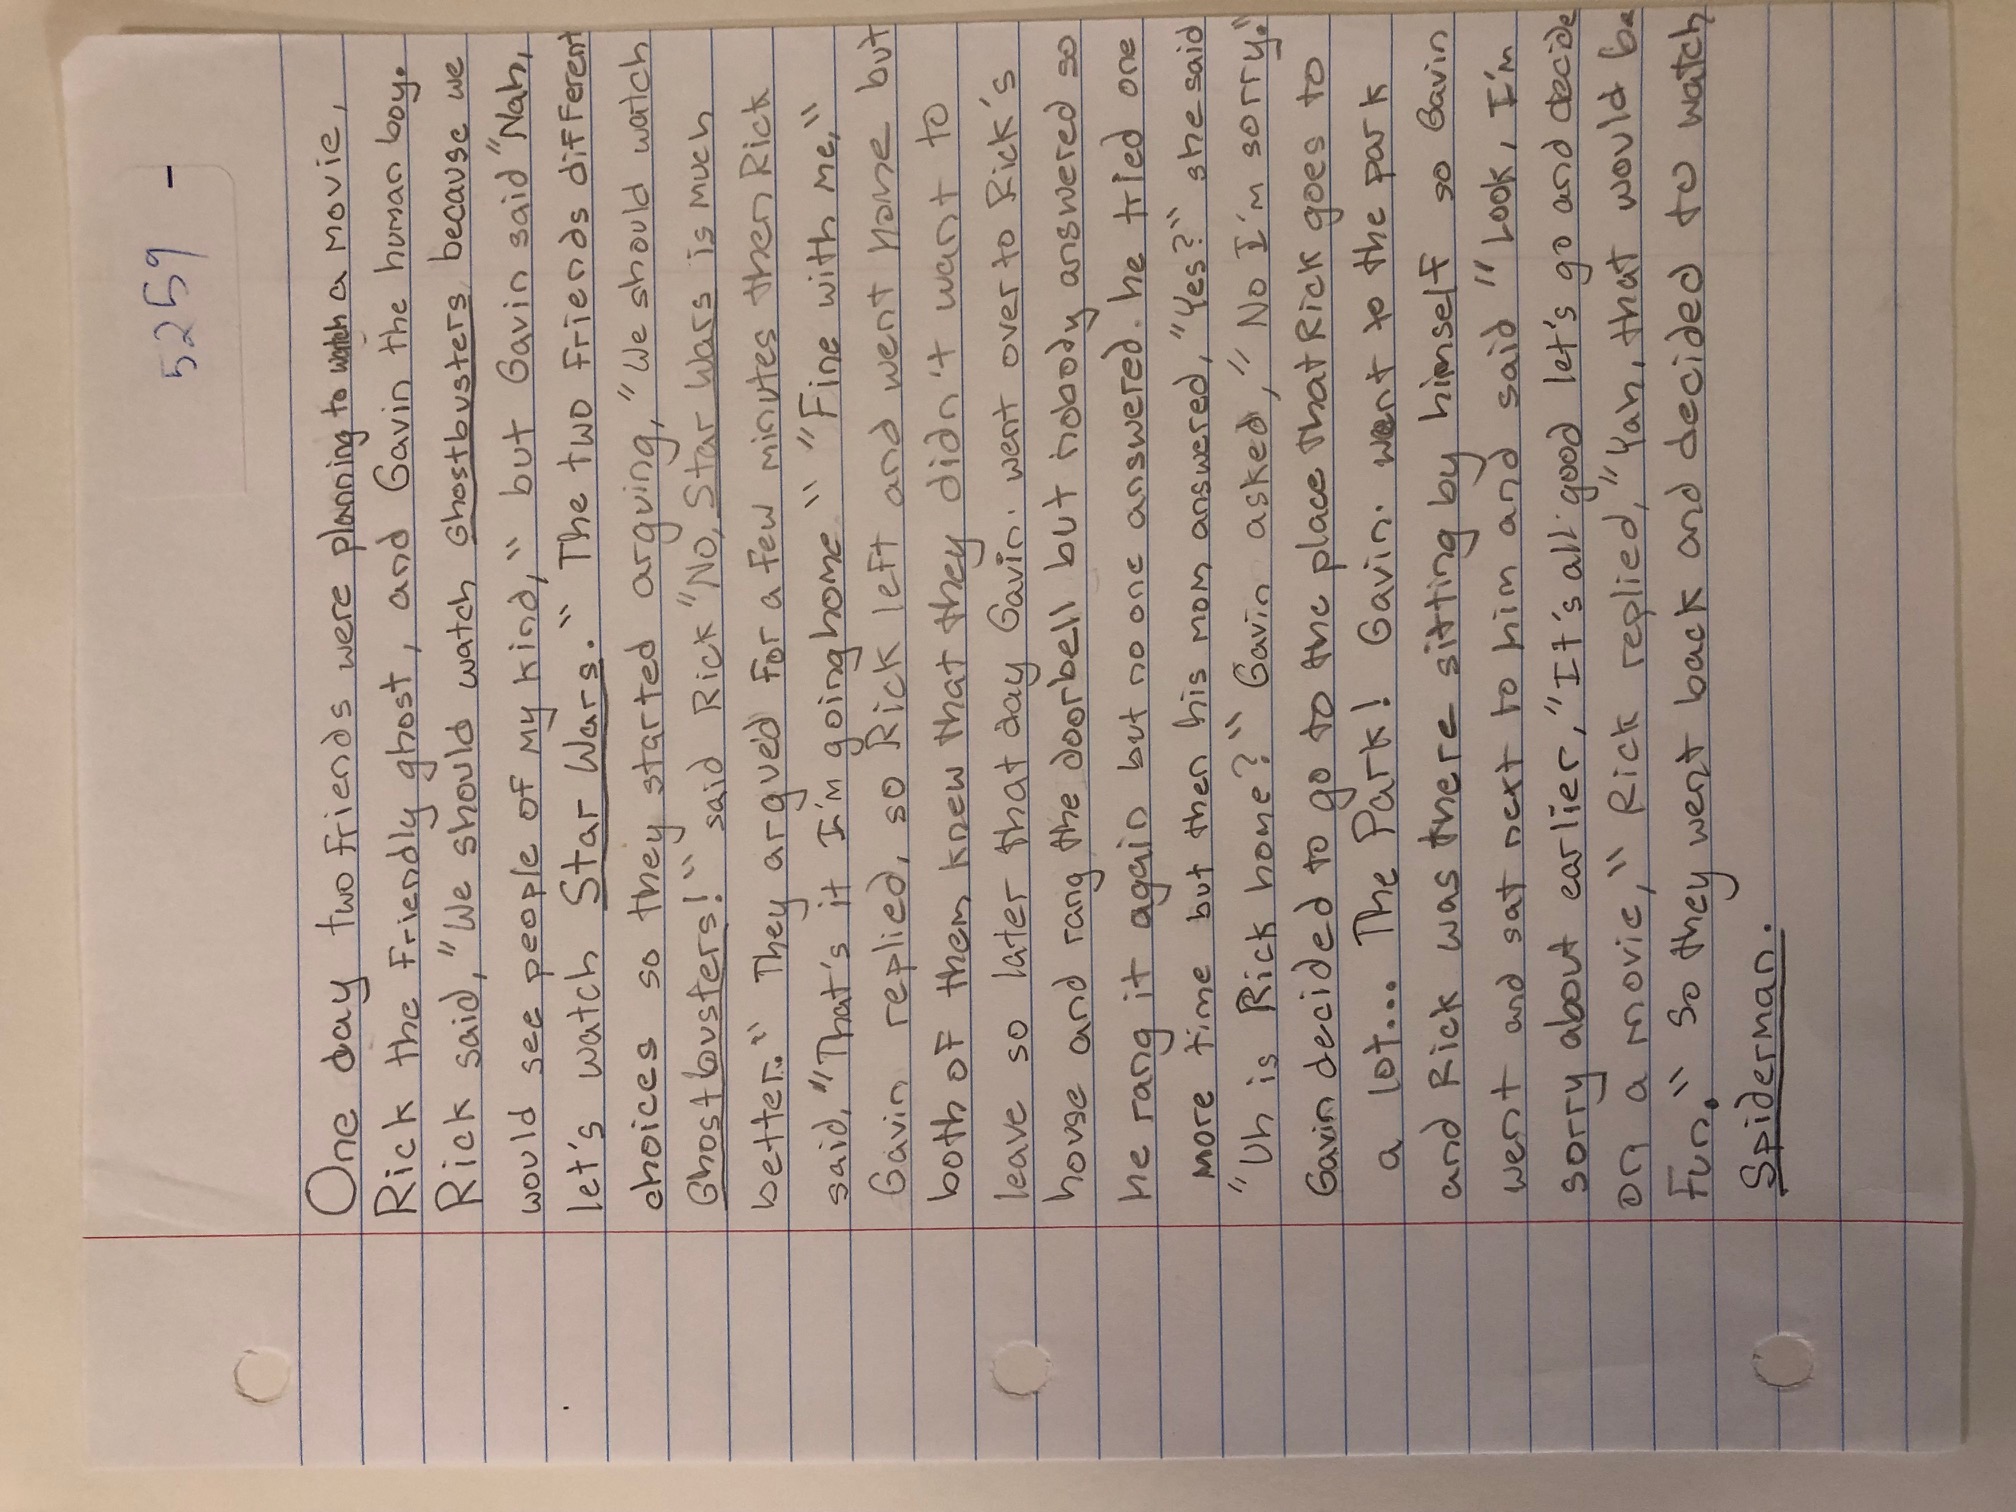 5259 -
One day two friends were planning to watch a movie,
Rick the friendly ghost, and Gavin the human boy.
Rick said, "We should watch Ghostbusters because we
would see people of my kind," but Gavin said "Nah,
let's watch Star Wars." The two friends different
choices so they started arguing, "We should watch
Ghostbusters!" said Rick "No, Star Wars is much
better." They argued for a few minutes then Rick
said, "That's it I'm going home" "Fine with me,"
Gavin replied, so Rick left and went home but
both of them knew that they didn't want to
leave so later that day Gavin. went over to Rick's
house and rang the doorbell but nobody answered so
he rang it again but no one answered. he tried one
more time but then his mom answered, "Yes?" she said
"Uh is Rick home?" Gavin asked, "No I'm sorry."
Gavin decided to go to the place that Rick goes to
a lot... The Park! Gavin. went to the park
and Rick was there sitting by himself so Gavin
went and sat next to him and said "Look, I'm
sorry about earlier, "It's all good let's go and decide
on a movie," Rick replied, "Yah, that would be
fun." So they went back and decided to watch
Spiderman.